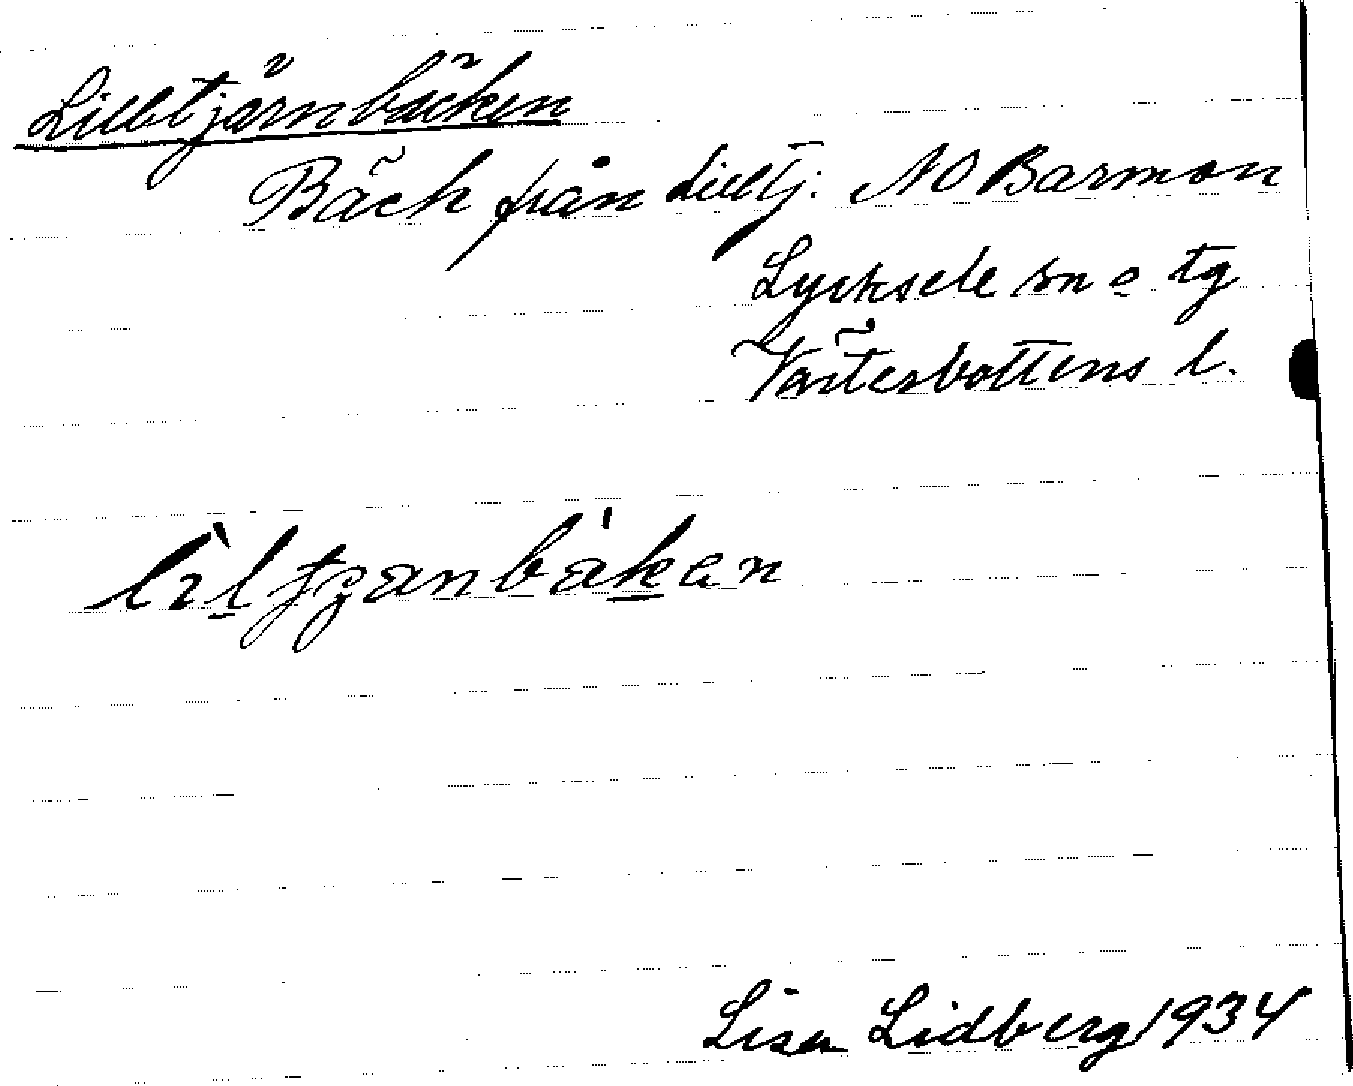 Lilltjärnbäcken
Bäck från Lilltj. NO Barmon
Lycksele sn o tg
Västerbottens l.
Lisa Lidberg 1934